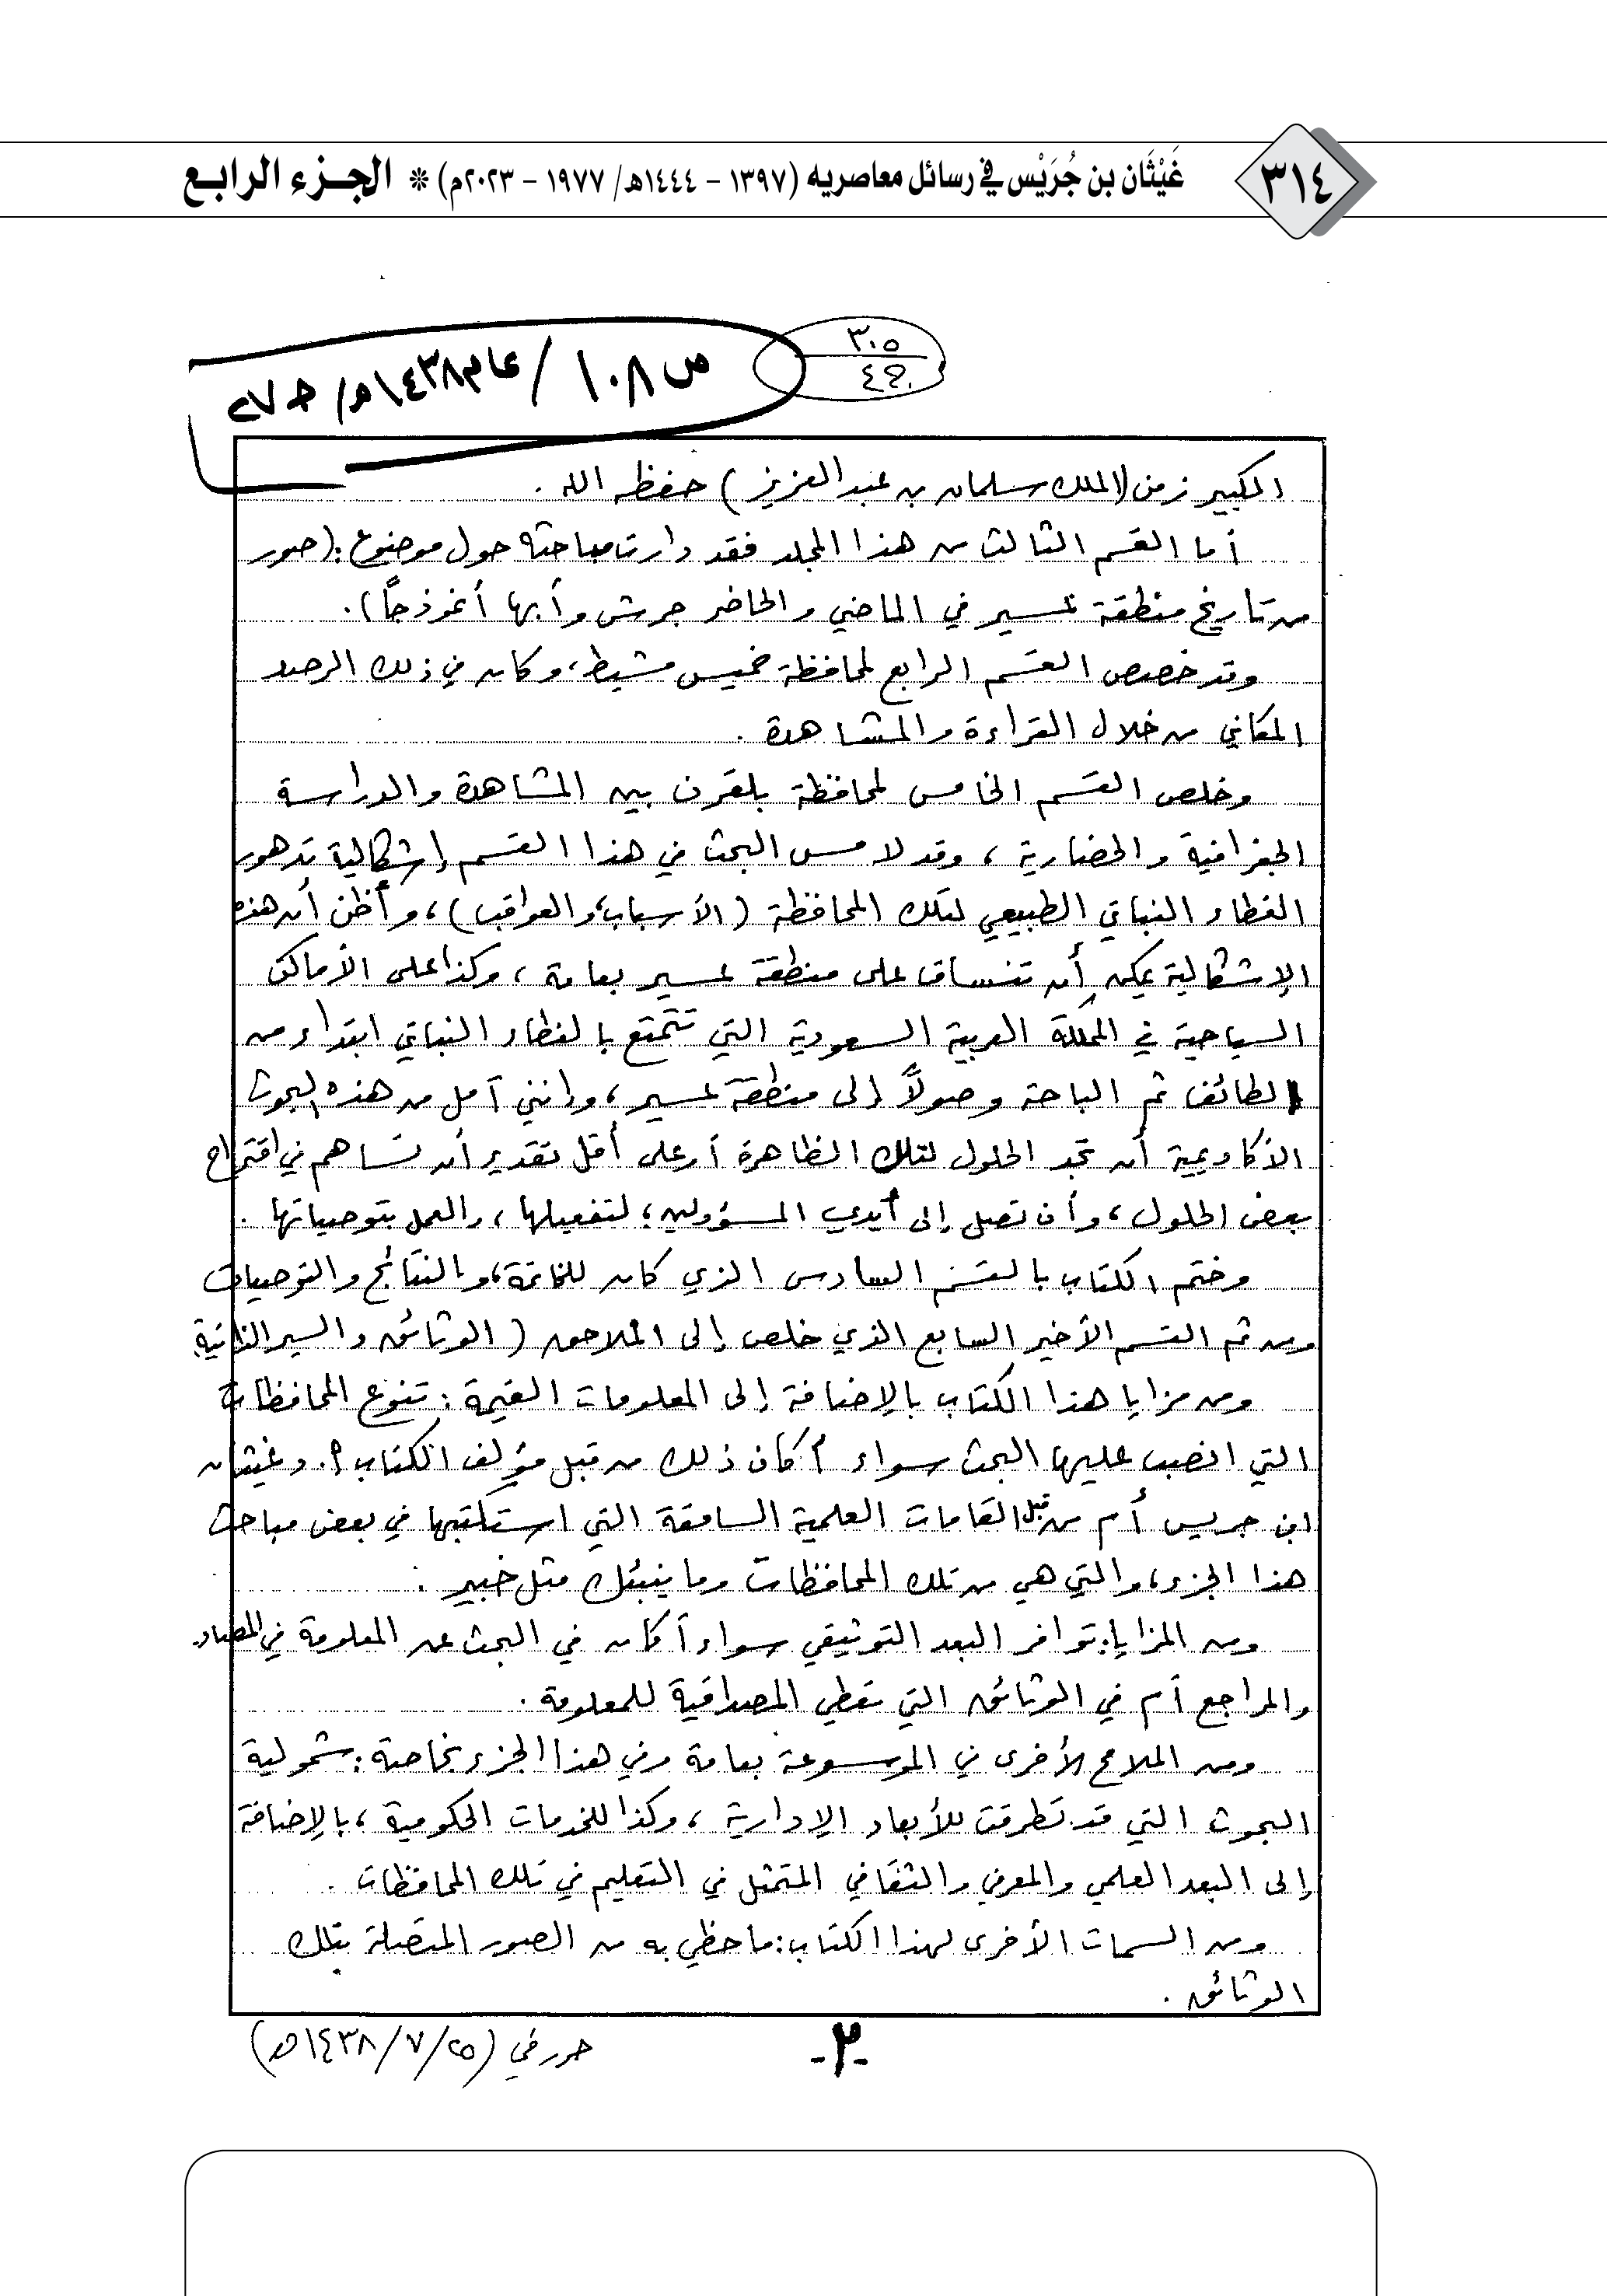 ٣١٤
غَيْثَان بن جُرَيْس في رسائل معاصريه (١٣٩٧ - ١٤٤٤هـ/ ١٩٧٧ - ٢٠٢٣م) * الجزء الرابع
٣٠٥
ج٤
ص ١٠٨ / عام ١٤٣٨هـ/ ح٧
الكبير زمن (الملك سلمان بن عبدالعزيز) حفظه الله .
أما القسم الثالث من هذا المجلد فقد دارت مباحثه حول موضوع : (صور
من تاريخ منطقة عسير في الماضي والحاضر جرش وأبها أنموذجاً) .
وقد خصص القسم الرابع لمحافظة خميس مشيط، وكان في ذلك الرصد
المكاني من خلال القراءة والمشاهدة .
وخلص القسم الخامس لمحافظة بلقرن بين المشاهدة والدراسة
الجغرافية والحضارية ، وقد لامس البحث في هذا القسم إشكالية تدهور
الغطاء النباتي الطبيعي لتلك المحافظة (الأسباب، والعواقب) ، وأظن أن هذه
الإشكالية يمكن أن تنساق على منطقة عسير بعامة ، وكذا على الأماكن
السياحية في المملكة العربية السعودية التي تتمتع بالغطاء النباتي ابتداء من
الطائف ثم الباحة وصولاً إلى منطقة عسير ، وإنني آمل من هذه البحوث
الأكاديمية أن تجد الحلول لتلك الظاهرة أو على أقل تقدير أن تساهم في اقتراح
بعض الحلول ، وأن تصل إلى أيدي المسؤولين ؛ لتفعيلها ، والعمل بتوصياتها .
وختم الكتاب بالقسم السادس الذي كان للخاتمة، والنتائج والتوصيات
ومن ثم القسم الأخير السابع الذي خلص إلى الملاحق (الوثائق والسير الذاتية)
ومن مزايا هذا الكتاب بالإضافة إلى المعلومات القيمة : تنوع المحافظات
التي انصب عليها البحث سواء أكان ذلك من قبل مؤلف الكتاب أ.د غيثان
ابن جريس أم من قبل القامات العلمية السامقة التي استكتبها في بعض مباحث
هذا الجزء، والتي هي من تلك المحافظات وما ينبئك مثل خبير .
ومن المزايا : توافر البعد التوثيقي سواء أكان في البحث عن المعلومة في المصادر
والمراجع أم في الوثائق التي تعطي المصداقية للمعلومة .
ومن الملامح الأخرى في الموسوعة بعامة وفي هذا الجزء بخاصة : شمولية
البحوث التي قد تطرقت للأبعاد الإدارية ، وكذا للخدمات الحكومية ، بالإضافة
إلى البعد العلمي والمعرفي والثقافي المتمثل في التعليم في تلك المحافظات .
ومن السمات الأخرى لهذا الكتاب : ما حظي به من الصور المتصلة بتلك
الوثائق .
-٢-
حرر في (٢٥/ ٧/ ١٤٣٨هـ)